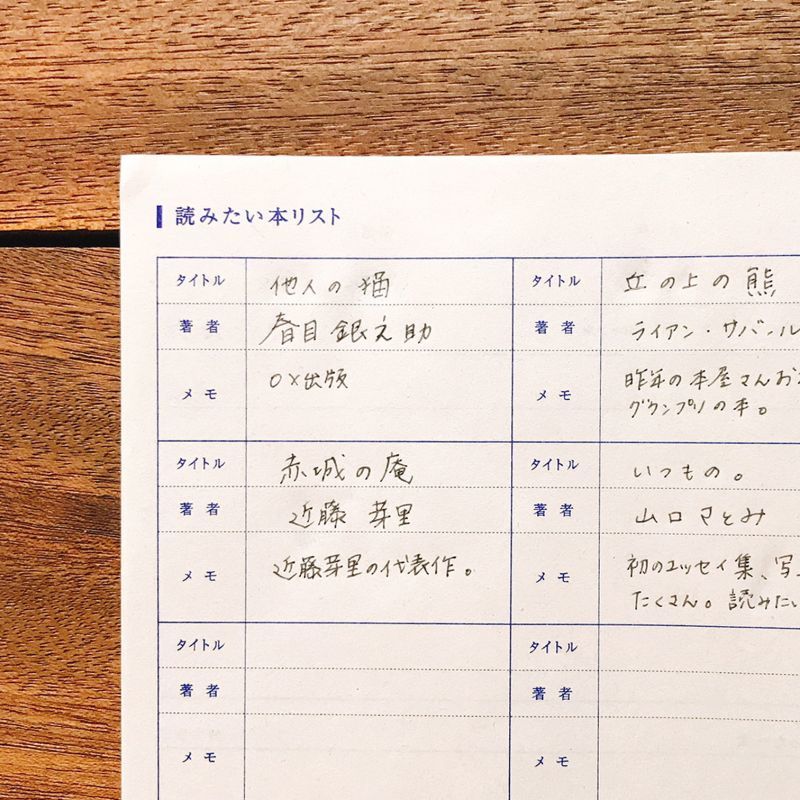 読みたい本リスト
タイトル 他人の猫
著者 春目 銀之助
メモ ○×出版
タイトル 丘の上の熊
著者 ライアン・サバール
メモ 昨年の本屋さんお
グランプリの本。
タイトル 赤城の庵
著者 近藤 芽里
メモ 近藤芽里の代表作。
タイトル いつもの。
著者 山口さとみ
メモ 初のエッセイ集、写
たくさん。読みたい
タイトル
著者
メモ
タイトル
著者
メモ